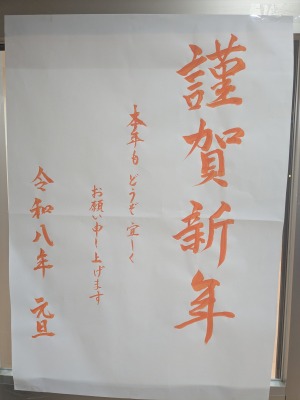 謹賀新年
本年もどうぞ宜しく
お願い申し上げます
令和八年 元旦